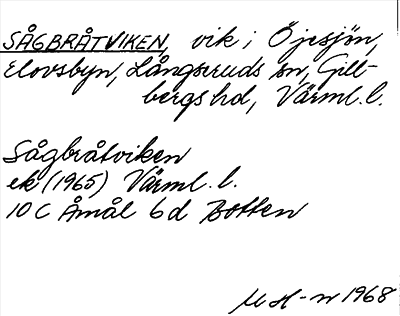 SÅGBRÅTVIKEN, vik i Öjesjön,
Elovsbyn, Långseruds sn, Gill-
bergs hd, Värml. l.
Sågbråtviken
ek (1965) Värml. l.
10 C Åmål 6 d Botten
M H-n 1968